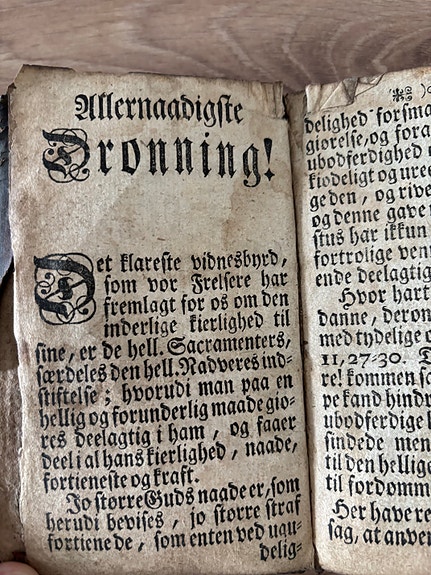 Allernaadigste
Dronning!
Det klareste vidnesbyrd,
som vor Frelsere har
fremlagt for os om den
inderlige kierlighed til
sine, er de hell. Sacramenters,
særdeles den hell. Nadveres ind-
stiftelse; hvorudi man paa en
hellig og forunderlig maade gio-
res deelagtig i ham, og faaer
deel i al hans kierlighed, naade,
fortieneste og kraft.
Jo større Guds naade er, som
herudi bevises, jo større straf
fortiene de, som enten ved uqu-
delig-
delighed forsma
giørelse, og fora
ubodferdighed
kiødeligt og uree
ge den, og rive
og denne gave
stus har ikkun
fortrolige venn
ende deelagtig
Hvor hart
danne, deron
med tydelige o
11,27-30.
re! kommen sa
pe kand hindr
ubodferdige h
sindede men
til den hellige
til fordømm
Her have re
sag, at anven